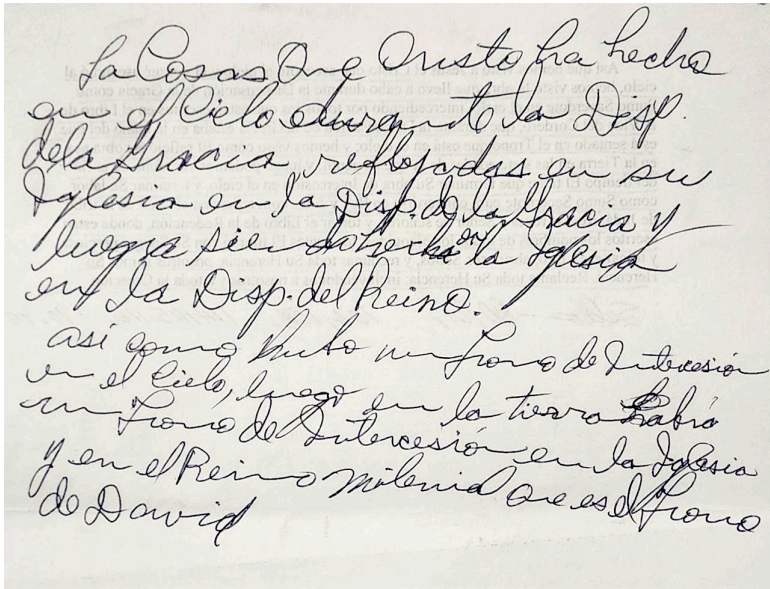 La Cosas Que Cristo ha hecho
en el Cielo durante la Disp.
de la Gracia, reflejadas en su
Iglesia en la Disp. de la Gracia y
luego en la Iglesia
en la Disp. del Reino.
Así como hubo un Trono de Intercesión
en el Cielo, luego en la tierra habrá
un Trono de Intercesión en la Iglesia
y en el Reino Milenial que es el Trono
de David